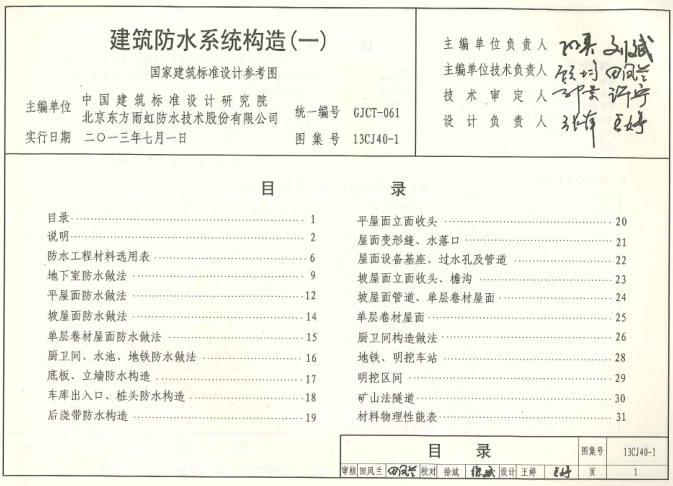 建筑防水系统构造(一)
国家建筑标准设计参考图
主编单位 中国建筑标准设计研究院
北京东方雨虹防水技术股份有限公司
统一编号 GJCT-061
实行日期 二○一三年七月一日
图集号 13CJ40-1
主编单位负责人
主编单位技术负责人 田凤兰
技术审定人
设计负责人 王婷
目 录
目录 1
说明 2
防水工程材料选用表 6
地下室防水做法 9
平屋面防水做法 12
坡屋面防水做法 14
单层卷材屋面防水做法 15
厨卫间、水池、地铁防水做法 16
底板、立墙防水构造 17
车库出入口、桩头防水构造 18
后浇带防水构造 19
平屋面立面收头 20
屋面变形缝、水落口 21
屋面设备基座、过水孔及管道 22
坡屋面立面收头、檐沟 23
坡屋面管道、单层卷材屋面 24
单层卷材屋面 25
厨卫间构造做法 26
地铁、明挖车站 28
明挖区间 29
矿山法隧道 30
材料物理性能表 31
目 录 图集号 13CJ40-1
审核 田凤兰 田凤兰 校对 徐斌 徐斌 设计 王婷 王婷 页 1